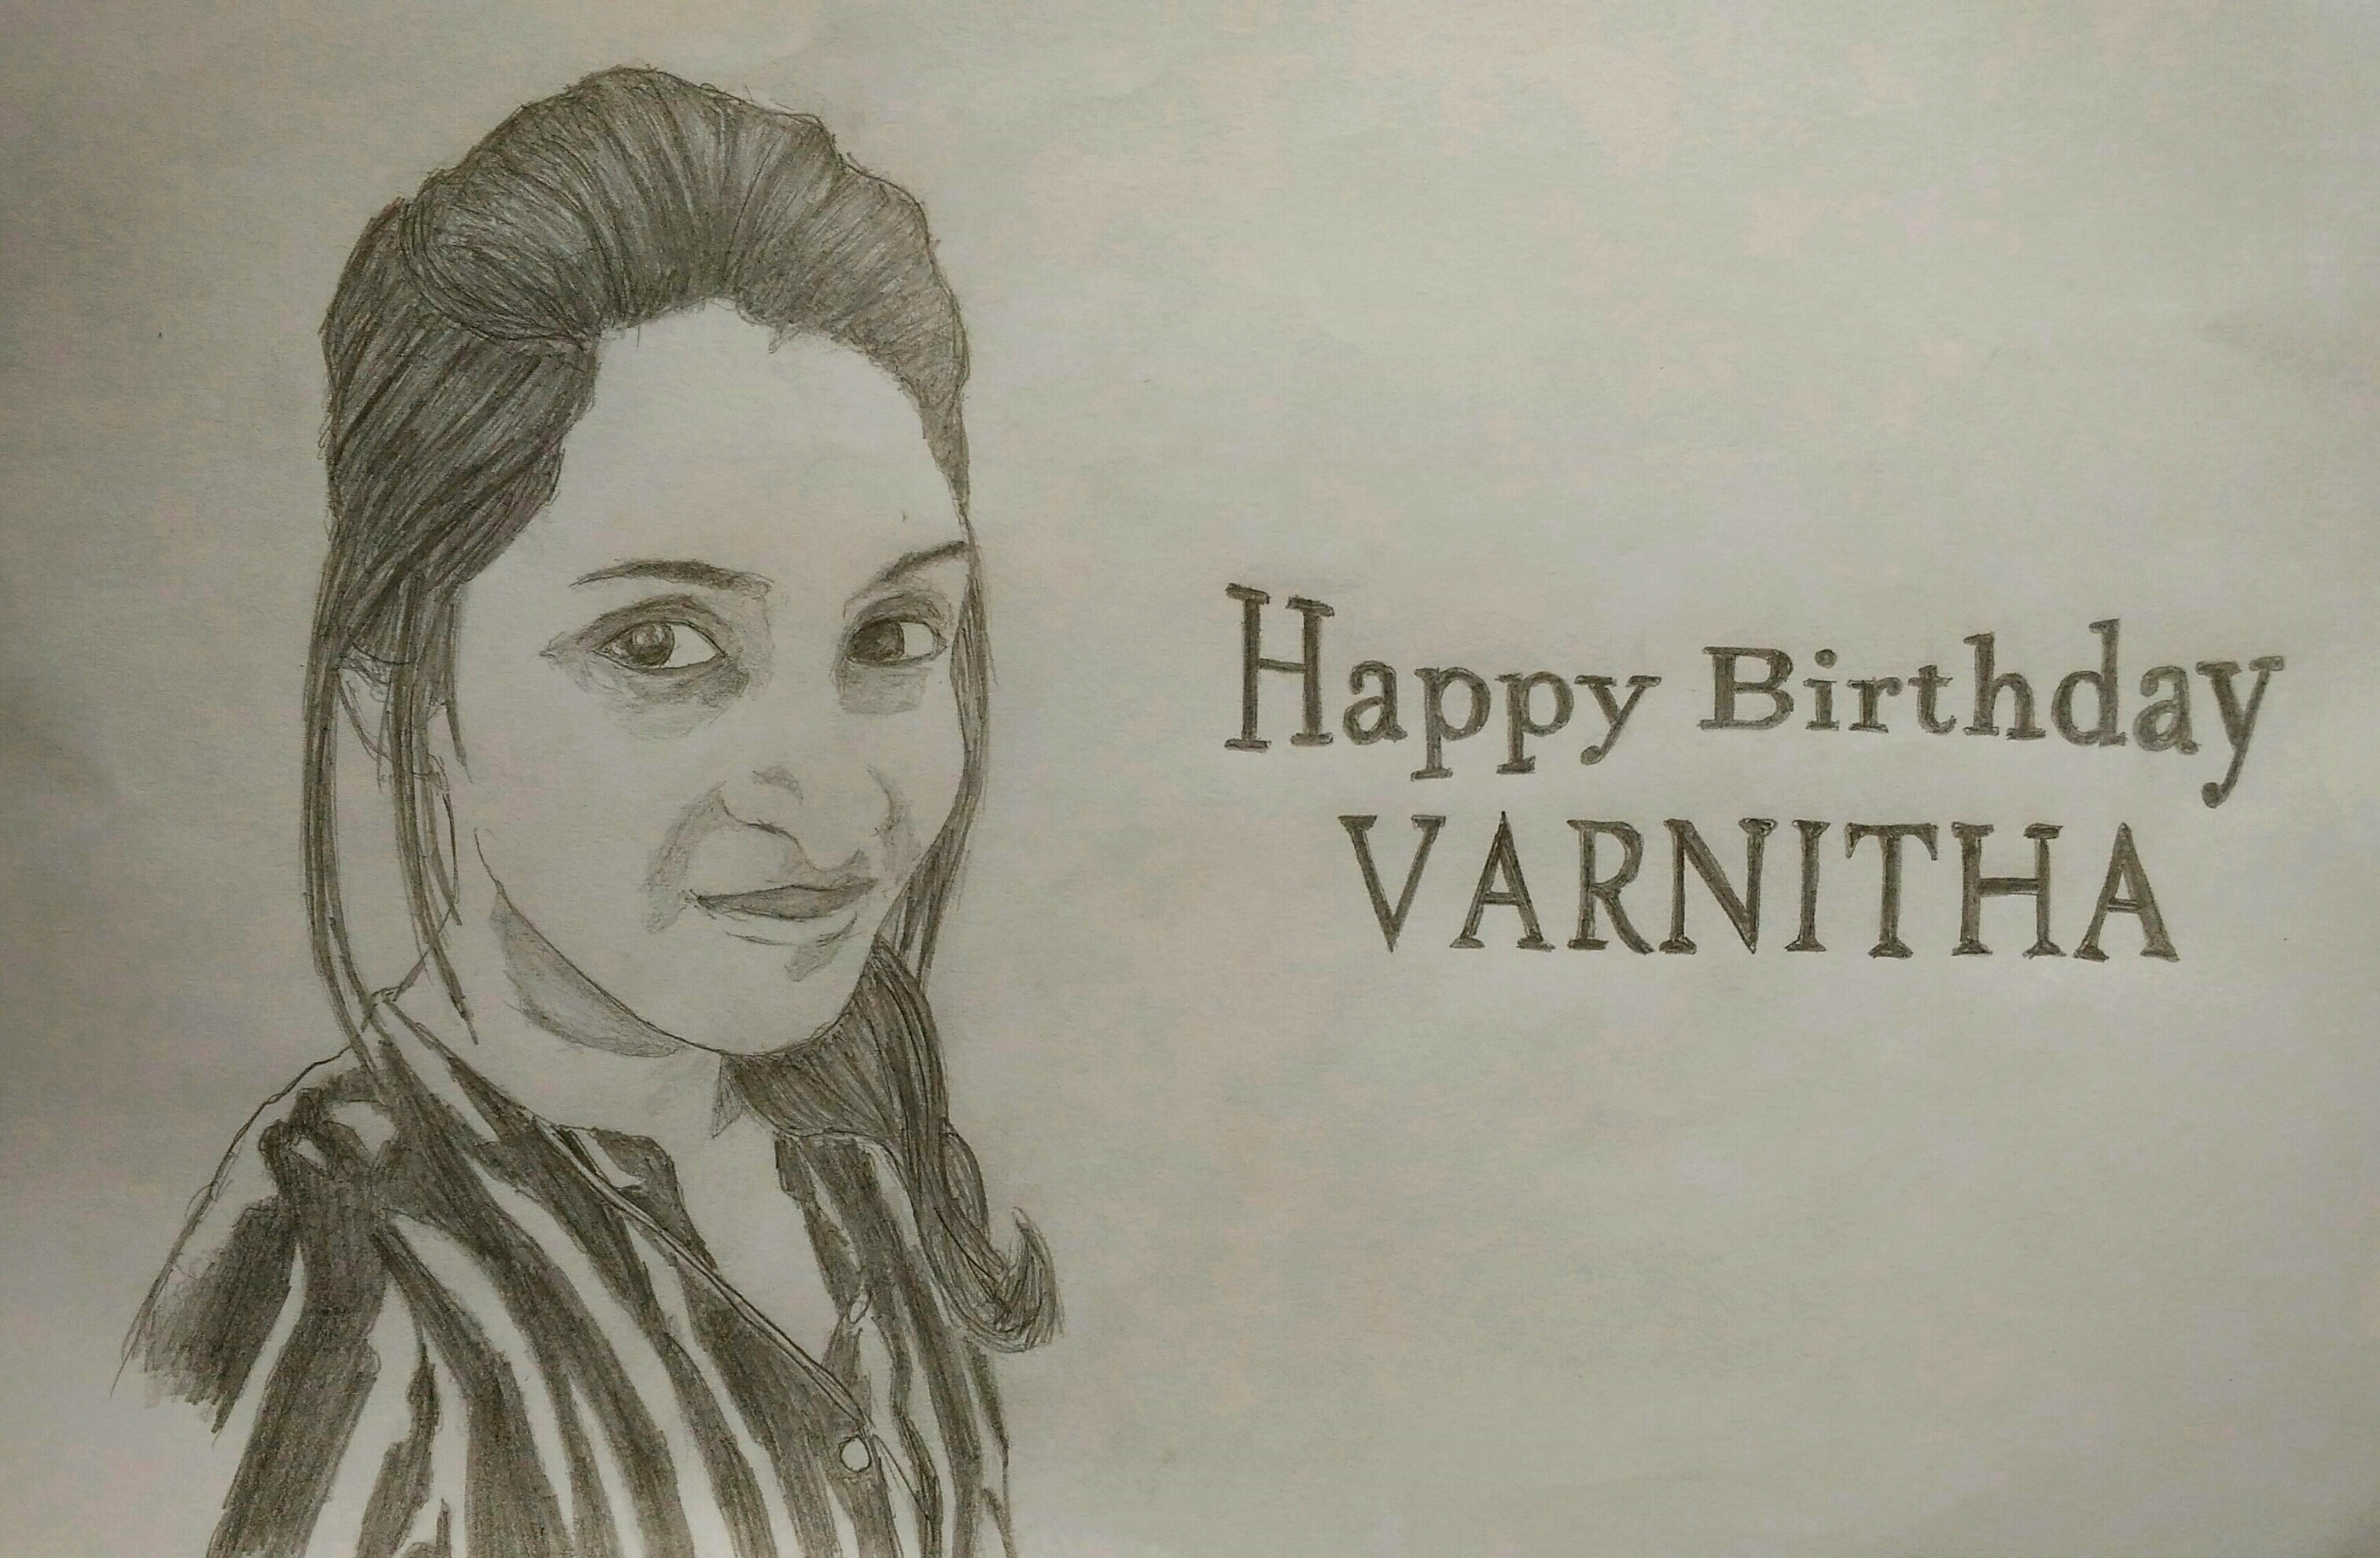 Happy Birthday
VARNITHA